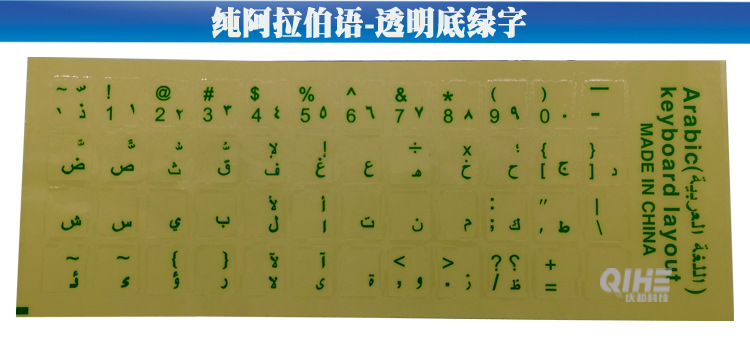 纯阿拉伯语-透明底绿字
~ ّ ! @ # $ % ^ & * ( ) —
` ذ 1 ١ 2 ٢ 3 ٣ 4 ٤ 5 ٥ 6 ٦ 7 ٧ 8 ٨ 9 ٩ 0 ٠ -
َ ً ُ ٌ لإ إ ÷ x ؛ { }
ض ص ث ق ف غ ع ه خ ح [ ج ] د
لأ أ : " |
ش س ي ب ل ا ت ن م ; ك , ط \
~ ْ { } لآ آ < > ? ؟ +
ئ ء ؤ ر لا ى ة , و . ز / ظ =
Arabic(اللغة العربية)
keyboard layout
MADE IN CHINA
QIHE
庆和科技